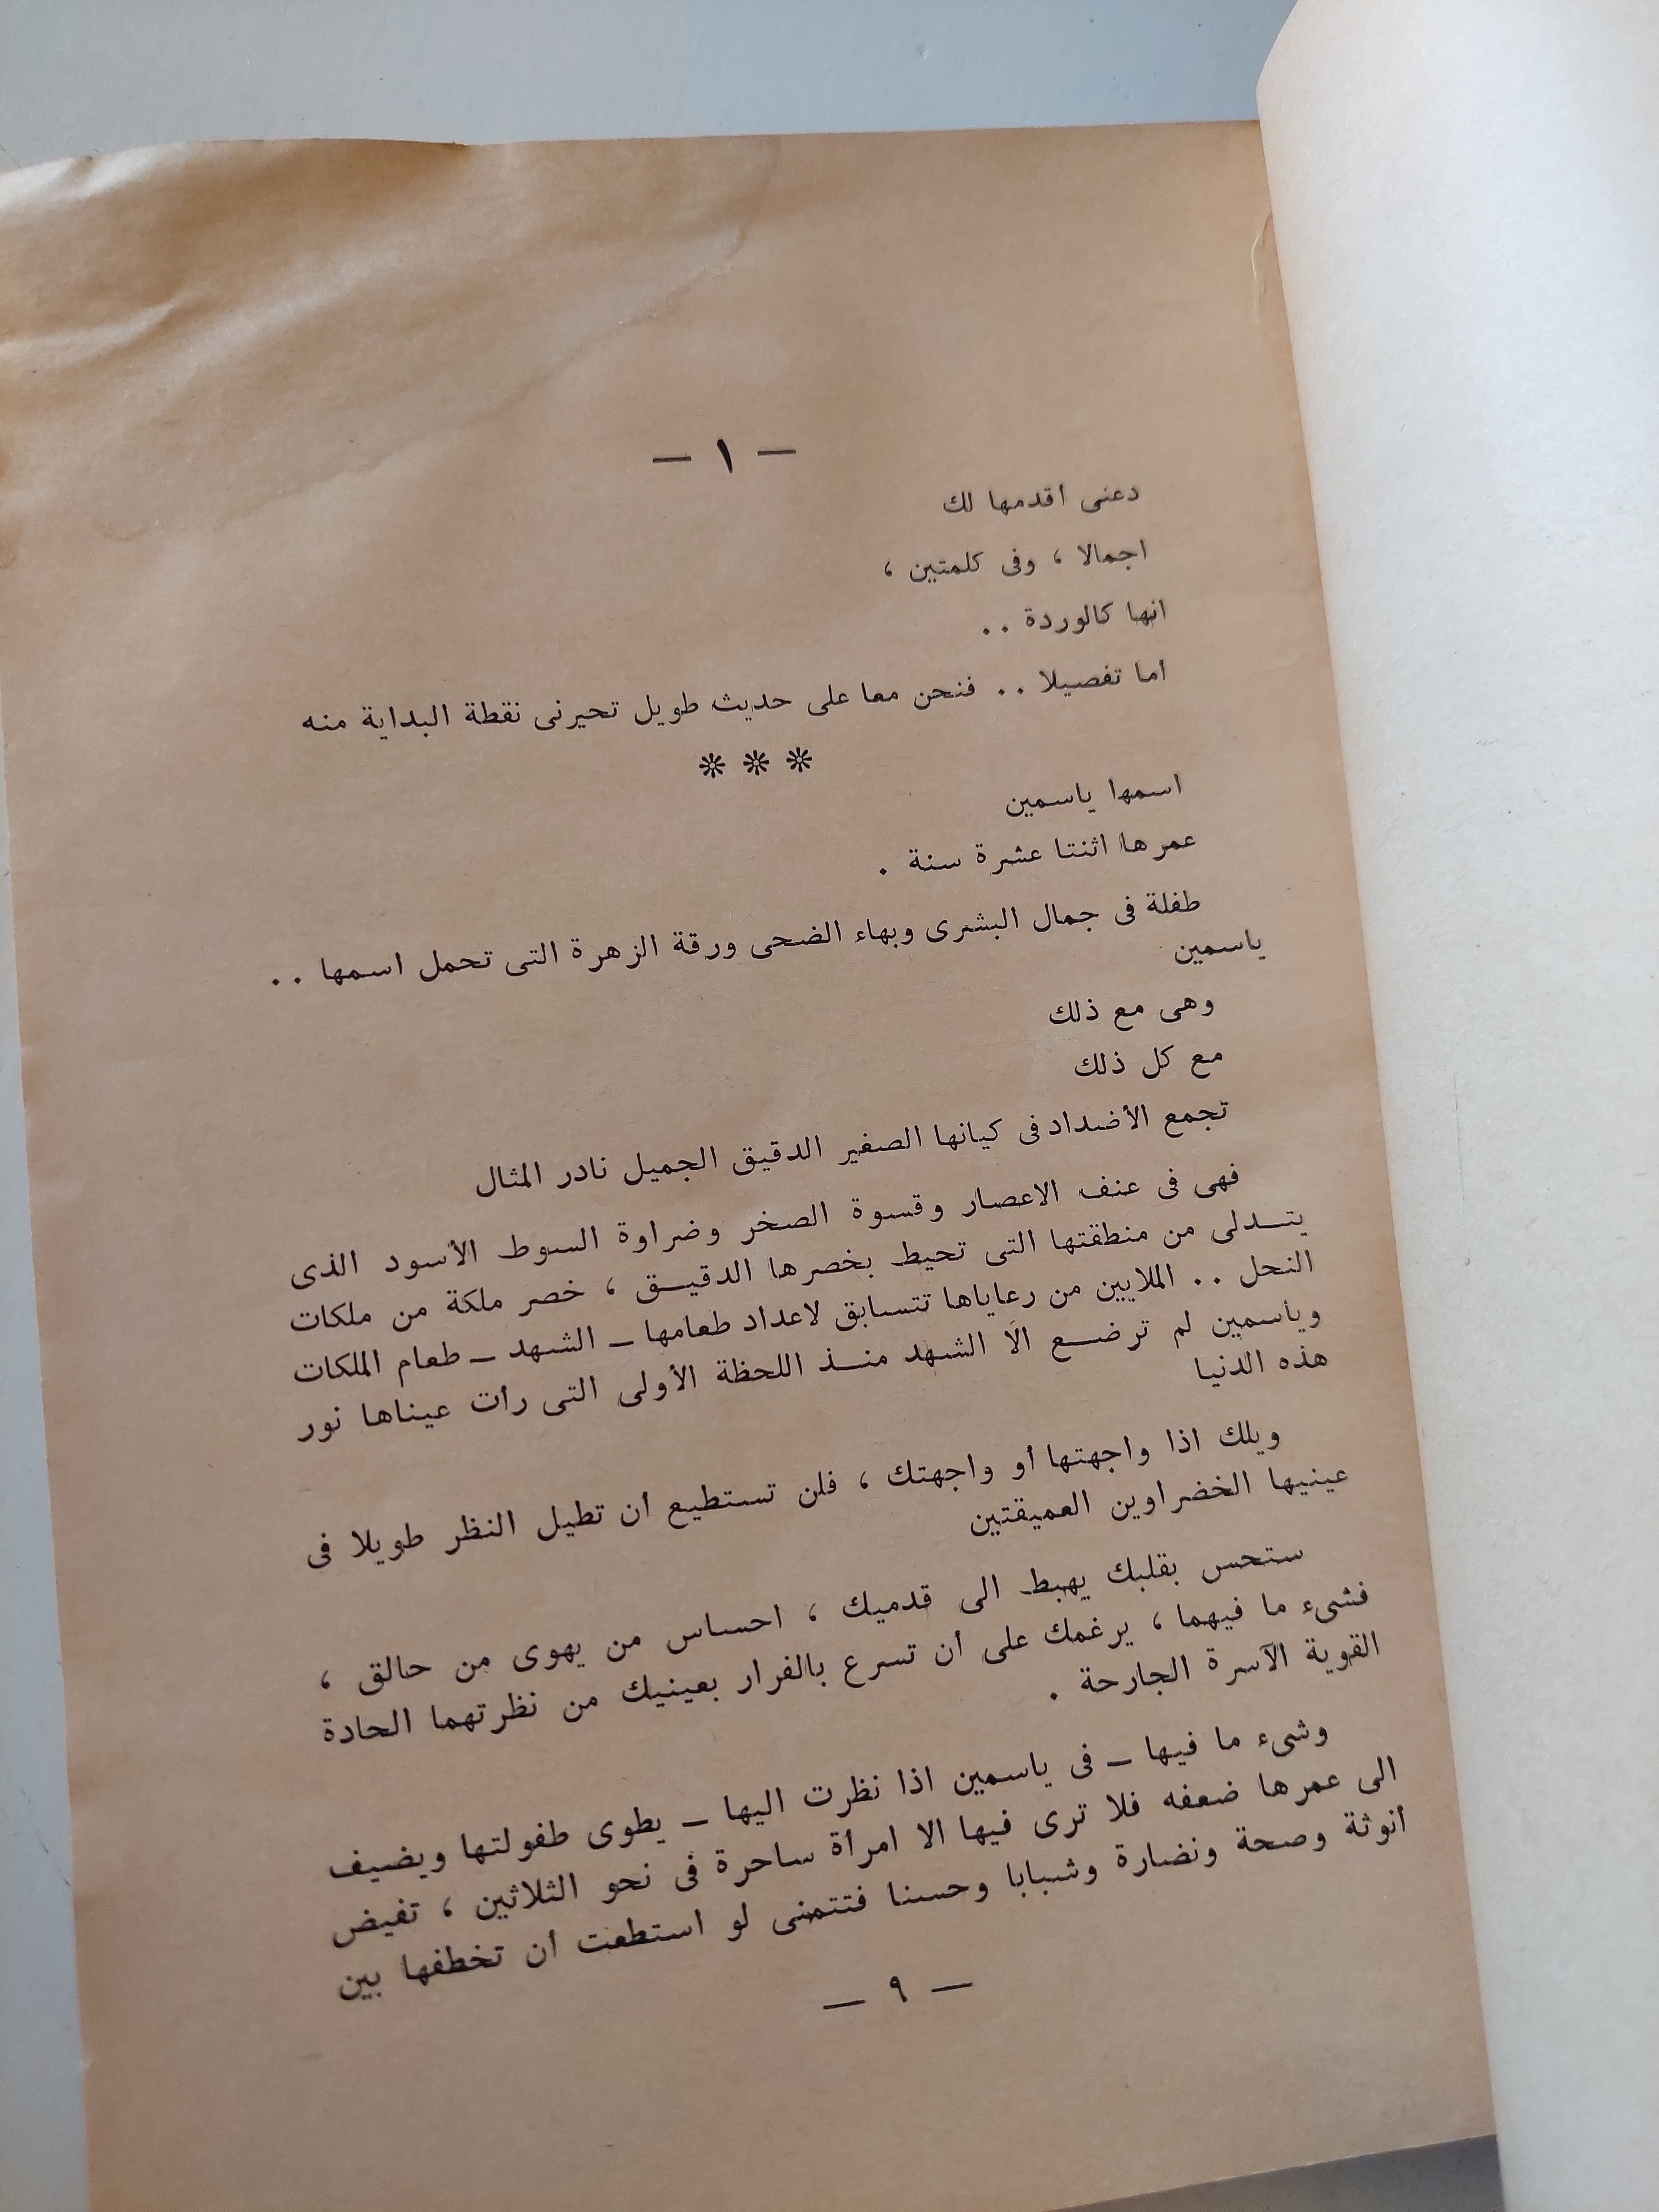 — ١ —
دعنى اقدمها لك
اجمالا ، وفى كلمتين ،
انها كالوردة . .
أما تفصيلا . . فنحن معا على حديث طويل تحيرنى نقطة البداية منه
❊ ❊ ❊
اسمها ياسمين
عمرها اثنتا عشرة سنة .
طفلة فى جمال البشرى وبهاء الضحى ورقة الزهرة التى تحمل اسمها . .
ياسمين
وهى مع ذلك
مع كل ذلك
تجمع الأضداد فى كيانها الصغير الدقيق الجميل نادر المثال
فهى فى عنف الاعصار وقسوة الصخر وضراوة السوط الأسود الذى
يتــدلى من منطقتها التى تحيط بخصرها الدقيــق ، خصر ملكة من ملكات
النحل . . الملايين من رعاياها تتسابق لاعداد طعامها ـ الشهد ـ طعام الملكات
وياسمين لم ترضــع الا الشهد منــذ اللحظة الأولى التى رأت عيناها نور
هذه الدنيا
ويلك اذا واجهتها أو واجهتك ، فلن تستطيع أن تطيل النظر طويلا فى
عينيها الخضراوين العميقتين
ستحس بقلبك يهبط الى قدميك ، احساس من يهوى من حالق ،
فشىء ما فيهما ، يرغمك على أن تسرع بالفرار بعينيك من نظرتهما الحادة
القوية الآسرة الجارحة .
وشىء ما فيها ـ فى ياسمين اذا نظرت اليها ـ يطوى طفولتها ويضيف
الى عمرها ضعفه فلا ترى فيها الا امرأة ساحرة فى نحو الثلاثين ، تفيض
أنوثة وصحة ونضارة وشبابا وحسنا فتتمنى لو استطعت أن تخطفها بين
— ٩ —